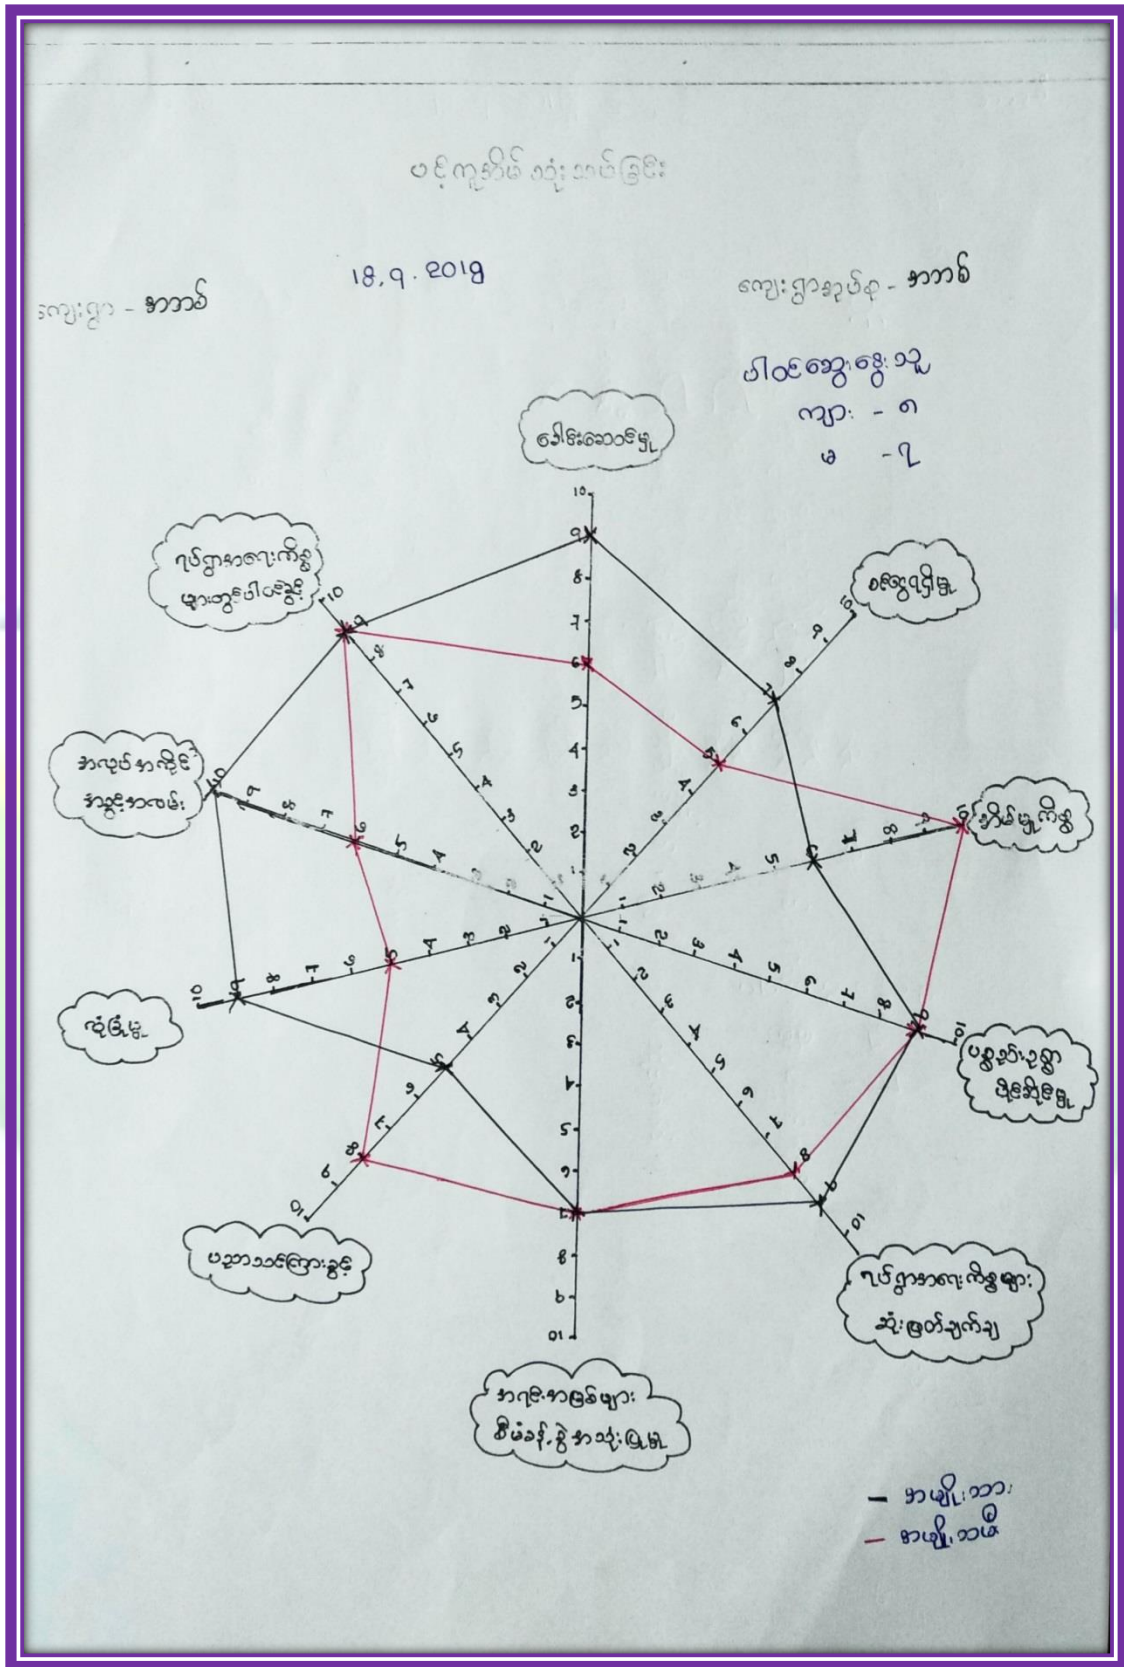 ပင့်ကူအိမ်သုံးသပ်ခြင်း
18.9.2019
ကျေးရွာ - အဘစ်
ကျေးရွာအုပ်စု - အဘစ်
ပါဝင်ဆွေးနွေးသူ
ကျား - ၈
မ - ၇
ခေါင်းဆောင်မှု
ဝင်ငွေရရှိမှု
အိမ်မှုကိစ္စ
ပစ္စည်းဥစ္စာ
ပိုင်ဆိုင်မှု
ရပ်ရွာအရေးကိစ္စများ
ဆုံးဖြတ်ချက်ချ
အရင်းအမြစ်များ
စီမံခန့်ခွဲအသုံးပြုမှု
ပညာသင်ကြားခွင့်
လုံခြုံမှု
အလုပ်အကိုင်
အခွင့်အလမ်း
ရပ်ရွာအရေးကိစ္စ
များတွင်ပါဝင်ခွင့်
10
9
8
7
6
5
4
3
2
1
- အမျိုးသား
- အမျိုးသမီး